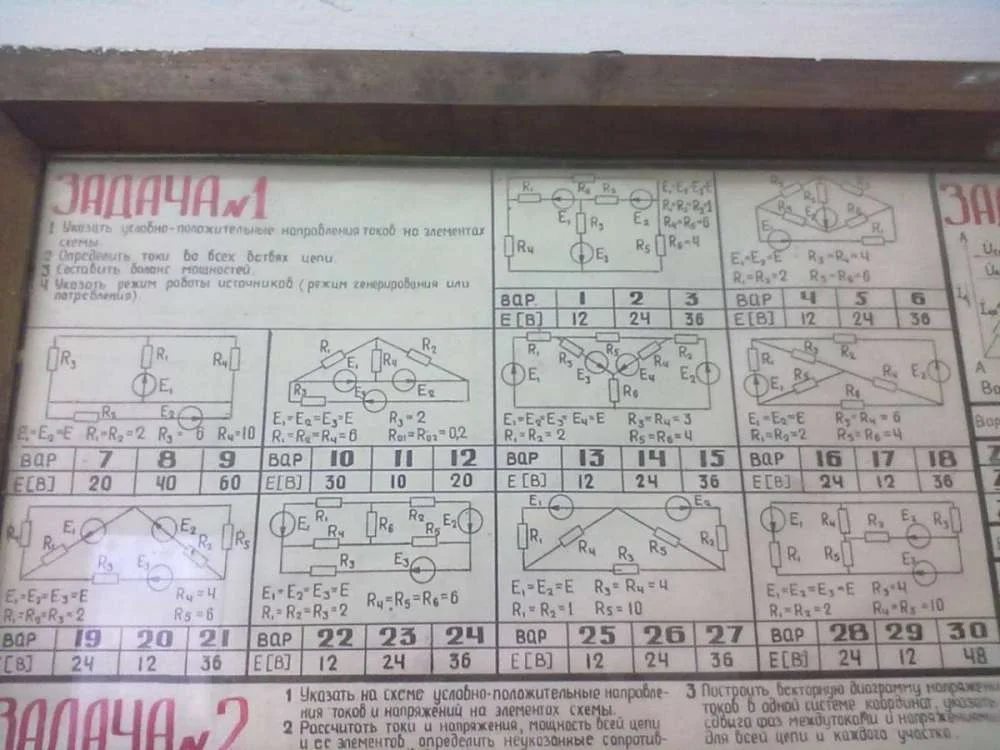 ЗАДАЧА №1
1 Указать условно-положительные направления токов на элементах
схемы.
2 Определить токи во всех ветвях цепи.
3 Составить баланс мощностей.
4 Указать режим работы источников (режим генерирования или
потребления).
R₁ R₂
E₁ E₂
R₃
R₄ E₃ R₅
R₆=4
ВАР. 1 2 3
E[В] 12 24 36
E₁=E₂=E R₃=R₄=4
R₁=R₂=2 R₅=R₆=6
ВАР 4 5 6
E[В] 12 24 36
R₃ R₁ R₄
E₁
R₂ E₂
E₁=E₂=E R₁=R₂=2 R₃=6 R₄=10
ВАР 7 8 9
E[В] 20 40 60
R₁ R₄ R₂
E₁ E₂
R₃
E₁=E₂=E₃=E R₃=2
R₁=R₂=R₄=6 R₀₁=R₀₂=0,2
ВАР 10 11 12
E[В] 30 10 20
R₁ R₅ R₂
R₃ R₄
E₁ E₃ E₄ E₂
R₆
E₁=E₂=E₃=E₄=E R₃=R₄=3
R₁=R₂=2 R₅=R₆=4
ВАР 13 14 15
E[В] 12 24 36
R₂
E₁ R₅ R₄ E₂
R₆
E₁=E₂=E R₃=R₄=6
R₁=R₂=2 R₅=R₆=4
ВАР 16 17 18
E[В] 24 12 36
R₄ E₁ E₂ R₅
R₁ R₂
R₃ E₃
E₁=E₂=E₃=E R₄=4
R₁=R₂=R₃=2 R₅=6
ВАР 19 20 21
E[В] 24 12 36
E₁ R₁ R₆ R₂ E₂
R₄ R₅
R₃ E₃
E₁=E₂=E₃=E
R₁=R₂=R₃=2 R₄=R₅=R₆=6
ВАР 22 23 24
E[В] 12 24 36
E₁ E₂
R₄ R₃ R₅ R₂
E₁=E₂=E R₃=R₄=4
R₁=R₂=1 R₅=10
ВАР 25 26 27
E[В] 12 24 36
E₁ R₄ R₂ E₂ R₃
R₁ R₅ E₃
E₁=E₂=E₃=E R₃=4
R₁=R₂=2 R₄=R₅=10
ВАР 28 29 30
E[В] 24 12 48
ЗАДАЧА №2
1 Указать на схеме условно-положительные направле-
ния токов и напряжений на элементах схемы.
2 Рассчитать токи и напряжения, мощность всей цепи
и ее элементов определить неуказанные сопротив-
3 Построить векторную диаграмму напряжени
токов в одной системе координат, указать
сдвига фаз между токами и напряжениями
для всей цепи и каждого участка.